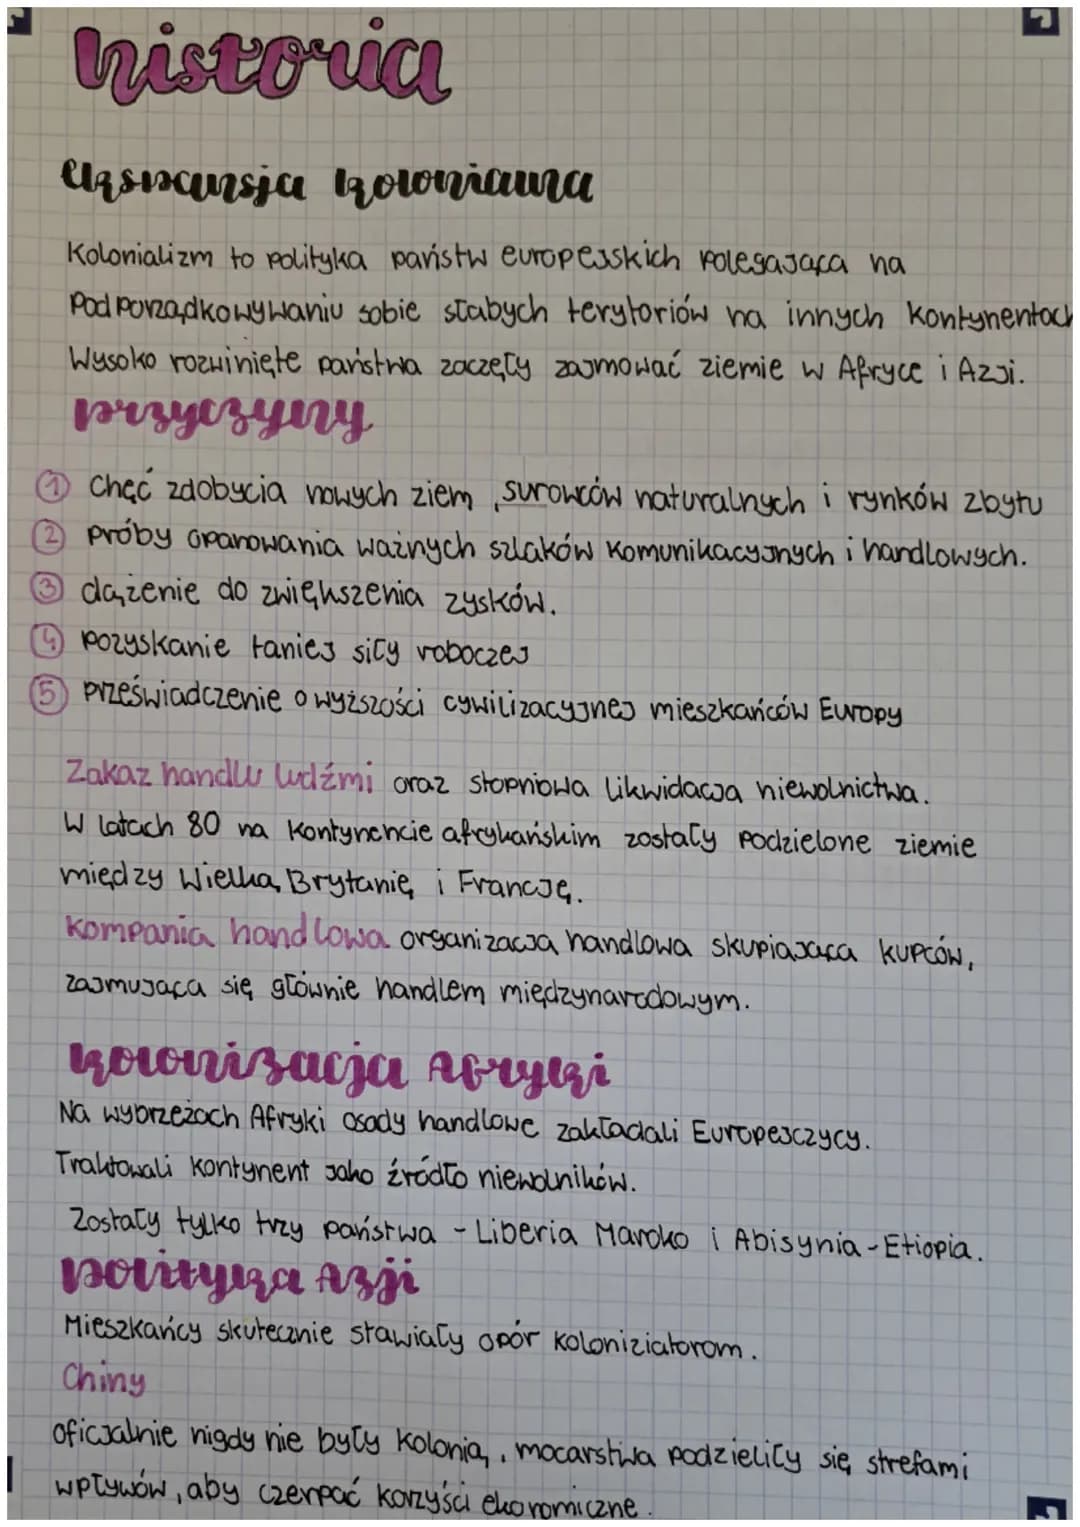 historia
Ekspansja kolonialna
Kolonializm to polityka państw europejskich polegająca na
Podporządkowywaniu sobie słabych terytoriów na innych kontynentach
Wysoko rozwinięte państwa zaczęły zajmować ziemie w Afryce i Azji.
przyczyny
① Chęć zdobycia nowych ziem, surowców naturalnych i rynków zbytu
② próby opanowania ważnych szlaków komunikacyjnych i handlowych.
③ dążenie do zwiększenia zysków.
④ pozyskanie taniej siły roboczej
⑤ przeświadczenie o wyższości cywilizacyjnej mieszkańców Europy
Zakaz handlu ludźmi oraz stopniowa likwidacja niewolnictwa.
W latach 80 na kontynencie afrykańskim zostały podzielone ziemie
między Wielką Brytanię i Francję.
Kompania handlowa organizacja handlowa skupiająca kupców,
zajmująca się głównie handlem międzynarodowym.
kolonizacja Afryki
Na wybrzeżach Afryki osady handlowe zakładali Europejczycy.
Traktowali kontynent jako źródło niewolników.
Zostały tylko trzy państwa - Liberia Maroko i Abisynia - Etiopia.
polityka Azji
Mieszkańcy skutecznie stawiały opór koloniziatorom.
Chiny
oficjalnie nigdy nie były kolonią, mocarstwa podzieliły się strefami
wpływów, aby czerpać korzyści ekonomiczne.